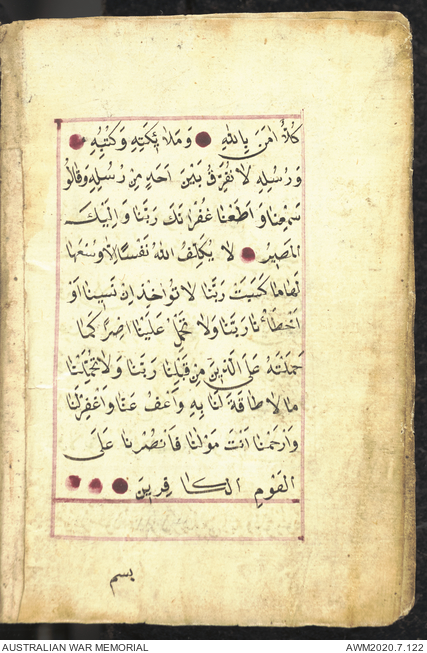 كُلٌّ اٰمَنَ بِاللّٰهِ وَمَلَائِكَتِهِ وَكُتُبِهِ
وَرُسُلِهِ لَا نُفَرِّقُ بَيْنَ اَحَدٍ مِنْ رُسُلِهِ وَقَالُو
سَمِعْنَا وَاَطَعْنَا غُفْرَانَكَ رَبَّنَا وَاِلَيْكَ
الْمَصِيرُ لَا يُكَلِّفُ اللّٰهُ نَفْسًا اِلَّا وُسْعَهَا
لَهَا مَا كَسَبَتْ رَبَّنَا لَا تُوَاخِذْ اِنْ نَسِينَا اَوْ
اَخْطَأْنَا رَبَّنَا وَلَا تَحْمِلْ عَلَيْنَا اِصْرًا كَمَا
حَمَلْتَهُ عَلَى الَّذِينَ مِنْ قَبْلِنَا رَبَّنَا وَلَا تُحَمِّلْنَا
مَا لَا طَاقَةَ لَنَا بِهِ وَاَعْفُ عَنَّا وَاَغْفِرْ لَنَا
وَاَرْحَمْنَا اَنْتَ مَوْلٰنَا فَانْصُرْنَا عَلَى
الْقَوْمِ الْكَافِرِينَ
بسم
AUSTRALIAN WAR MEMORIAL
AWM2020.7.122